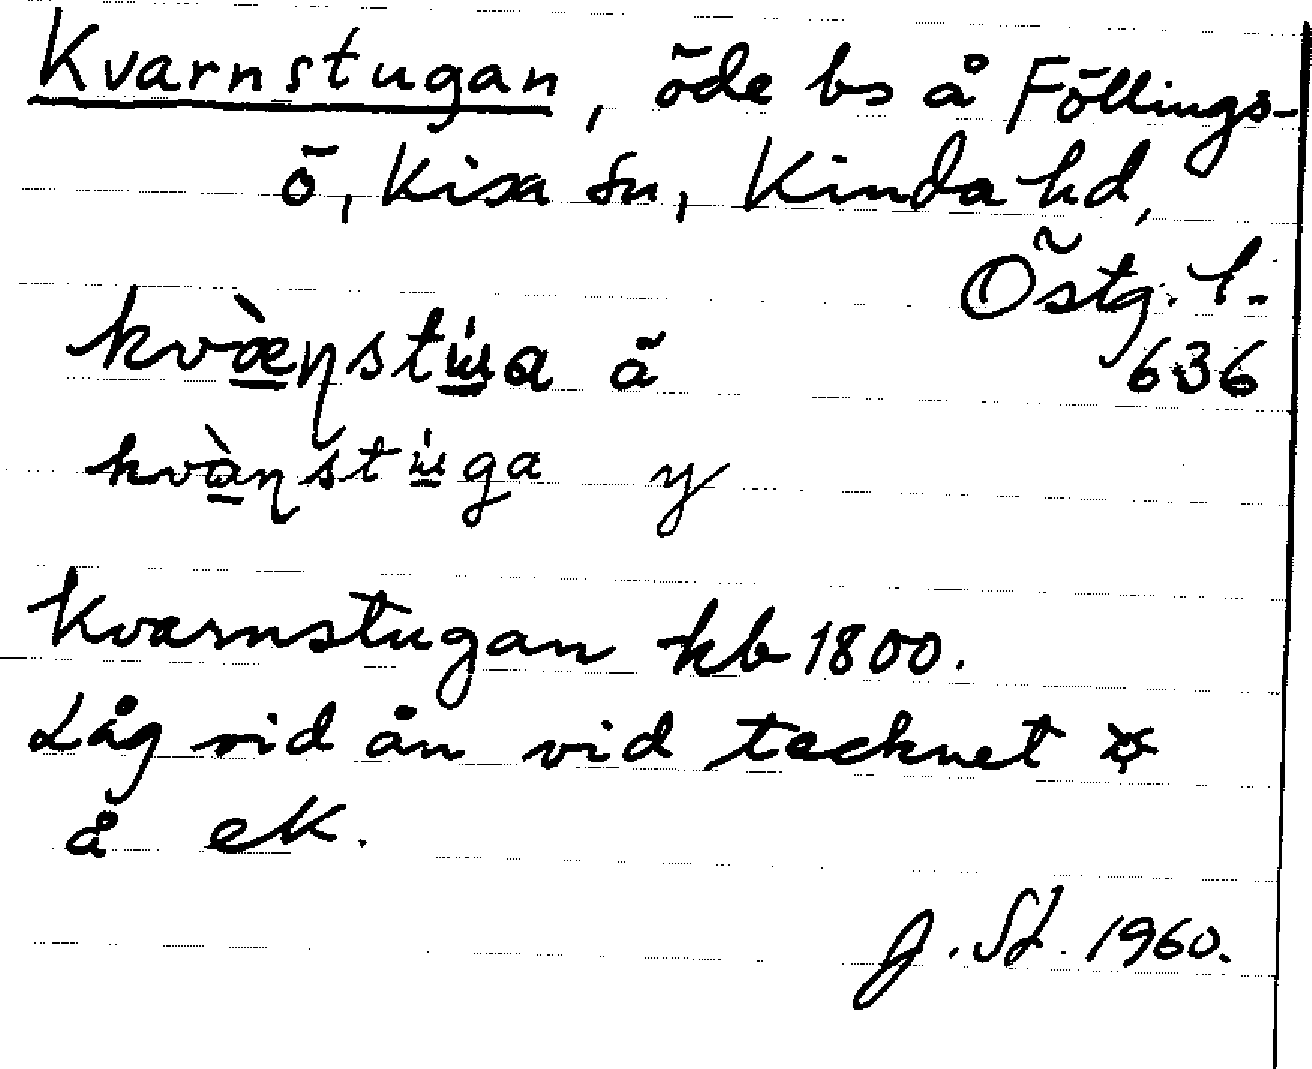 Kvarnstugan, öde bs å Föllings-
ö, Kisa sn, Kinda hd,
Östg. l.
kvæ̀ṇstɯ́a ä 636
kvàṇstɯ́ga y
Kvarnstugan kb 1800.
Låg vid ån vid tecknet ¤
å ek.
J. St. 1960.